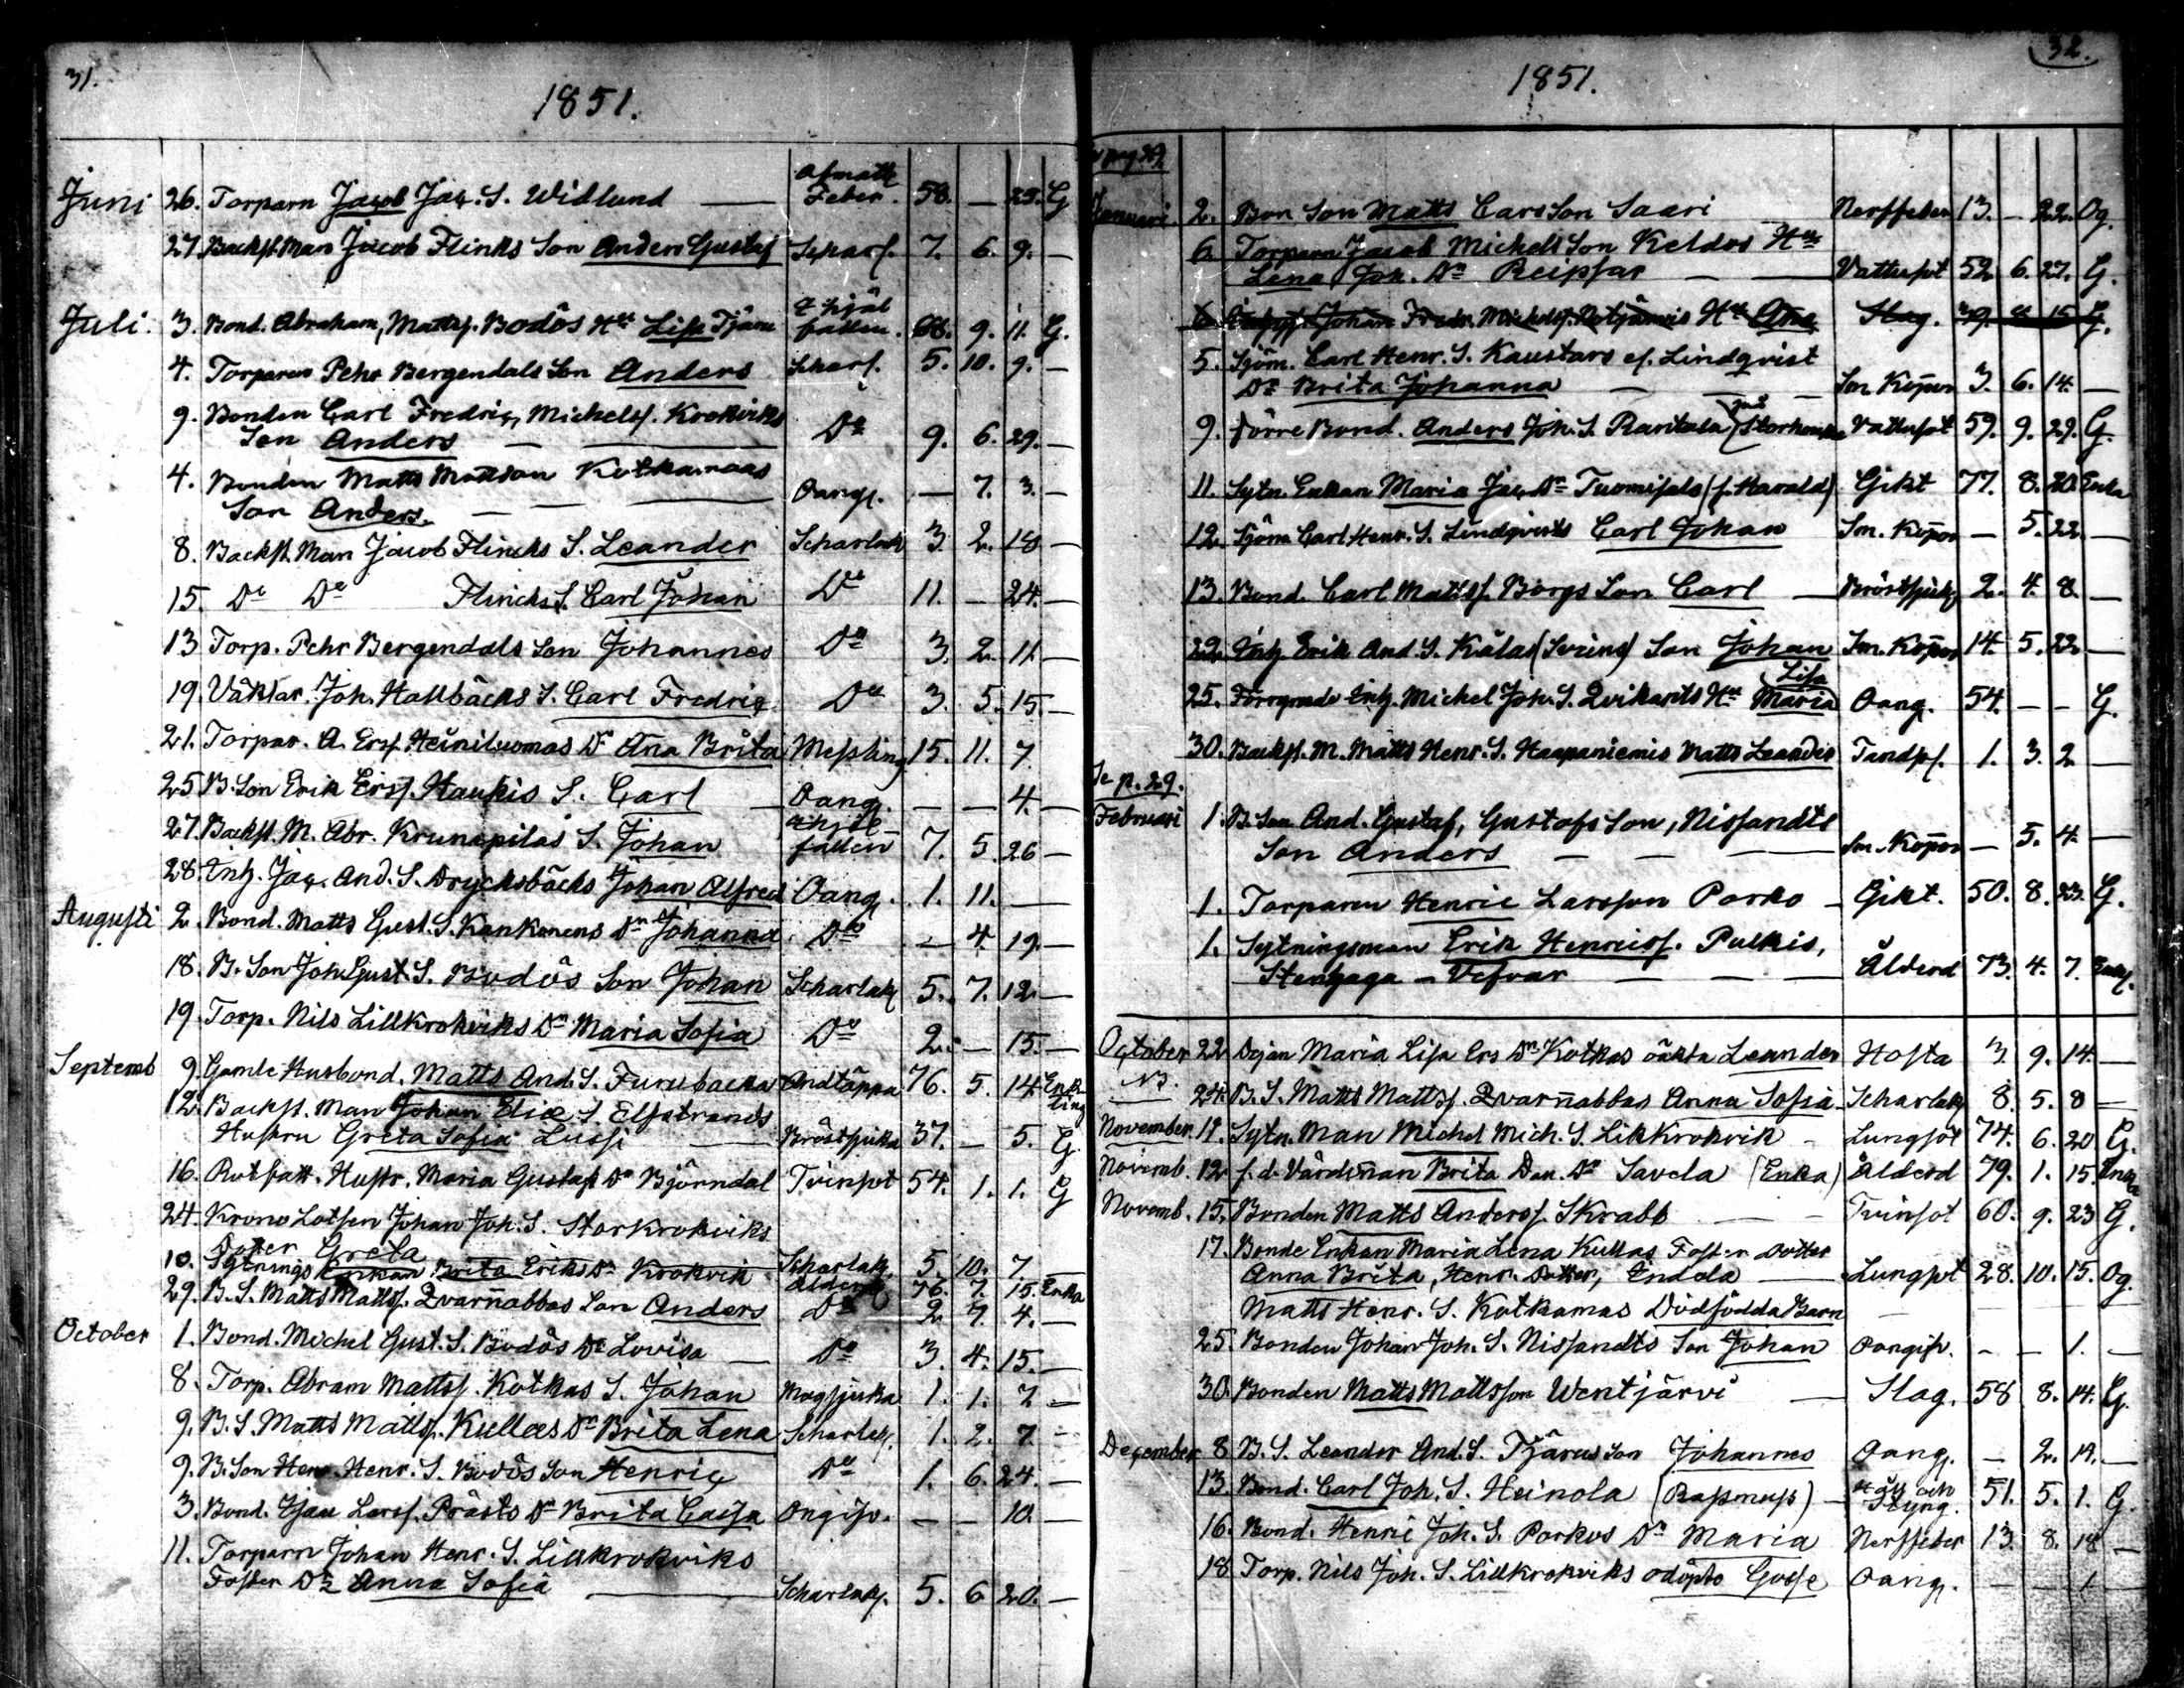 31.
1851.
Juni 26. Torparn Jacob Jac. S. Widlund — Afmatt. Feber. 58. — 25. G
27. Backst. Man Jacob Flinks Son Anders Gustaf Scharl. 7. 6. 9. —
Juli. 3. Bond. Abraham, Mattsf. Bodös Hu Lisa Tjäru ihjäl fallen. 68. 9. 11. G.
4. Torparen Pehr Bergendals Son Anders Scharl. 5. 10. 9. —
9. Bonden Carl Fredric, Michelsf. Krokviks
Son Anders — — Do 9. 6. 29. —
4. Bonden Matts Mattson Kotkamaas
Son Anders. — — Oang. — 7. 3. —
8. Backst. Man Jacob Flincks S. Leander Scharlak 3. 2. 18 —
15. Do Do Flincks S. Carl Johan Do 11. — 24. —
13 Torp. Pehr Bergendals Son Johannes Do 3. 2. 11. —
19. Väktar. Joh. Hallbäcks S. Carl Fredric Do 3. 5. 15. —
21. Torpar. A. Ersf. Heiniluomas Dr Ana Brita Messling 15. 11. 7
25 B. Son Erik Ersf. Haukis S. Carl — Oang. — — 4. —
27. Backst. M. Abr. Krunapilas S. Johan ihjäl fallen 7. 5. 26 —
28. Inh. Jac. And. S. Drycksbäcks Johan Alfred Oang. 1. 11. —
Augusti 2. Bond. Matts Gust. S. Kankonens Dr Johanna Do — 4. 19. —
18. B. Son Joh. Gust. S. Bodös Son Johan Scharlak 5. 7. 12. —
19. Torp. Nils Lillkrokviks Dr Maria Sofia Do 2. — 15. —
Septemb 9. Gamle Husbond. Matts And. S. Furubacka Andtäppa 76. 5. 14. Enkling
12. Backst. Man Johan Eliæ S. Elfstrands
Hustru Greta Sofia Lussi — Bröstsjuka 37. — 5. G.
16. Rotfatt. Hustr. Maria Gustafs Dr Björndal Tvinsot 54. 1. 1. G
24. Krono Lotsen Johan Joh. S. Storkrokviks
Doter Greta Scharlak. 5. 10. 7
10. Sytnings Enkan Brita Eriks Dr Krokvik Ålderd. 76. 7. 15. Enka
29. B. S. Matts Mattsf. Qvarnabbas Son Anders Do 2 7. 4. —
October 1. Bond. Michel Gust. S. Bodös Dr Lovisa — Do 3. 4. 15. —
8. Torp. Abram Mattsf. Kotkas S. Johan Magsjuka 1. 1. 7 —
9. B. S. Matts Mattsf. Kullas Dr Brita Lena Scharlak. 1. 2. 7. —
9. B. Son Henr. Henr. S. Bodös Son Henric Do 1. 6. 24. —
3. Bond. Isac Larsf. Prästs Dr Brita Caisa Ongifv. — — 10. —
11. Torparn Johan Henr. S. Lillkrokviks
Foster Dr Anna Sofia — Scharlak. 5. 6 20. —
32.
1851.
pag. 29
Januari 2. Bon Son Matts Cars Son Saari Nerffeber 13. — 22. Og.
6. Torparn Jacob Michels Son Keldos Hu
Lena Joh. Dr Reipsar — Vattusot 52. 6. 27. G.
6 Johan Fredr. Michelsf. Hu Ana Slag. 39. 8 15 G.
5. Sjöm. Carl Henr. S. Kaustars el. Lindqvist
Dr Brita Johanna — — Sm. Kopor 3. 6. 14. —
9. Förre Bond. Anders Joh. S. Rantala (på Storhonka Vattusot 59. 9. 29. G.
11. Sytn. Enkan Maria Jac. Dr Tuomisals (f. Harald) Gikt 77. 8. 20. Enka
12. Sjöm Carl Henr. S. Lindqvists Carl Johan Sm. Kopor — 5. 22. —
13. Bond. Carl Mattsf. Borgs Son Carl — Bröstsjuk. 2. 4. 8. —
22. Inh. Erik And. S. Kålas (Svens) Son Johan Sm. Kopor 14. 5. 22 —
25. Förrgrade Inh. Michel Joh. S. Qvikants Hu Maria Lisa Oang. 54. — — G.
30. Backst. M. Matts Henr. S. Haapaniemis Matts Leander Tandsf. 1. 3. 2. —
Se p. 29.
Februari 1. B. Son And. Gustaf, Gustafs Son, Nissandts
Son Anders — — — Sm. Kopor — 5. 4. —
1. Torparen Henric Larsson Porko — Gikt. 50. 8. 23. G.
1. Sytningsman Erik Henricsf. Pulkis,
Stenhaga — Vefvar — — Ålderd 73. 4. 7. Enkl.
October 22 Dejan Maria Lisa Ers Dr Kotkas oäkta Leander Hosta 3. 9. 14. —
NB. 24. B. S. Matts Mattsf. Qvarnabbas Anna Sofia Scharlak 8. 5. 8 —
November. 19. Sytn. Man Michel Mich. S. Lillkrokvik — Lungsot 74. 6. 20 G.
Novemb. 12 f. d. Värdsman Brita Dan. Dr Savela (Enka) Ålderd 79. 1. 15. Enka
Novemb. 15. Bonden Matts Andersf. Skrabb — — Tvinsot 60. 9. 23 G.
17. Bonde Enkan Maria Lena Kullas Foster Dotter
Anna Brita, Henr. Dotter, Endela — Lungsot 28. 10. 15. Og.
Matts Henr. S. Kotkamas Dödfödda Barn —
25. Bonden Johan Joh. S. Nissandts Son Johan Oangifv. — — 1. —
30. Bonden Matts Mattsson Wentjärvi — Slag. 58 8. 14. G.
December 8. B. S. Leander And. S. Tjärus Son Johannes Oang. — 2. 19. —
13. Bond. Carl Joh. S. Heinola (Rasmus) — Håll och Styng. 51. 5. 1. G.
16. Bond. Henri Joh. S. Porkos Dr Maria Nerffeber 13 8. 18 —
18 Torp. Nils Joh. S. Lillkrokviks odöpta Gosse Oang. — — 1